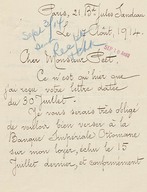 Paris, 21 Bd Jules Sandeau
Le Août, 1914
Cher Monsieur Peet
Ce n'est qu'hier que
j'ai reçu votre lettre datée
du 30 Juillet.
Je vous serais très obligé
de vouloir bien verser à la
Banque Impériale Ottomane
sur mon loyer, échu le 15
Juillet dernier, et conformément